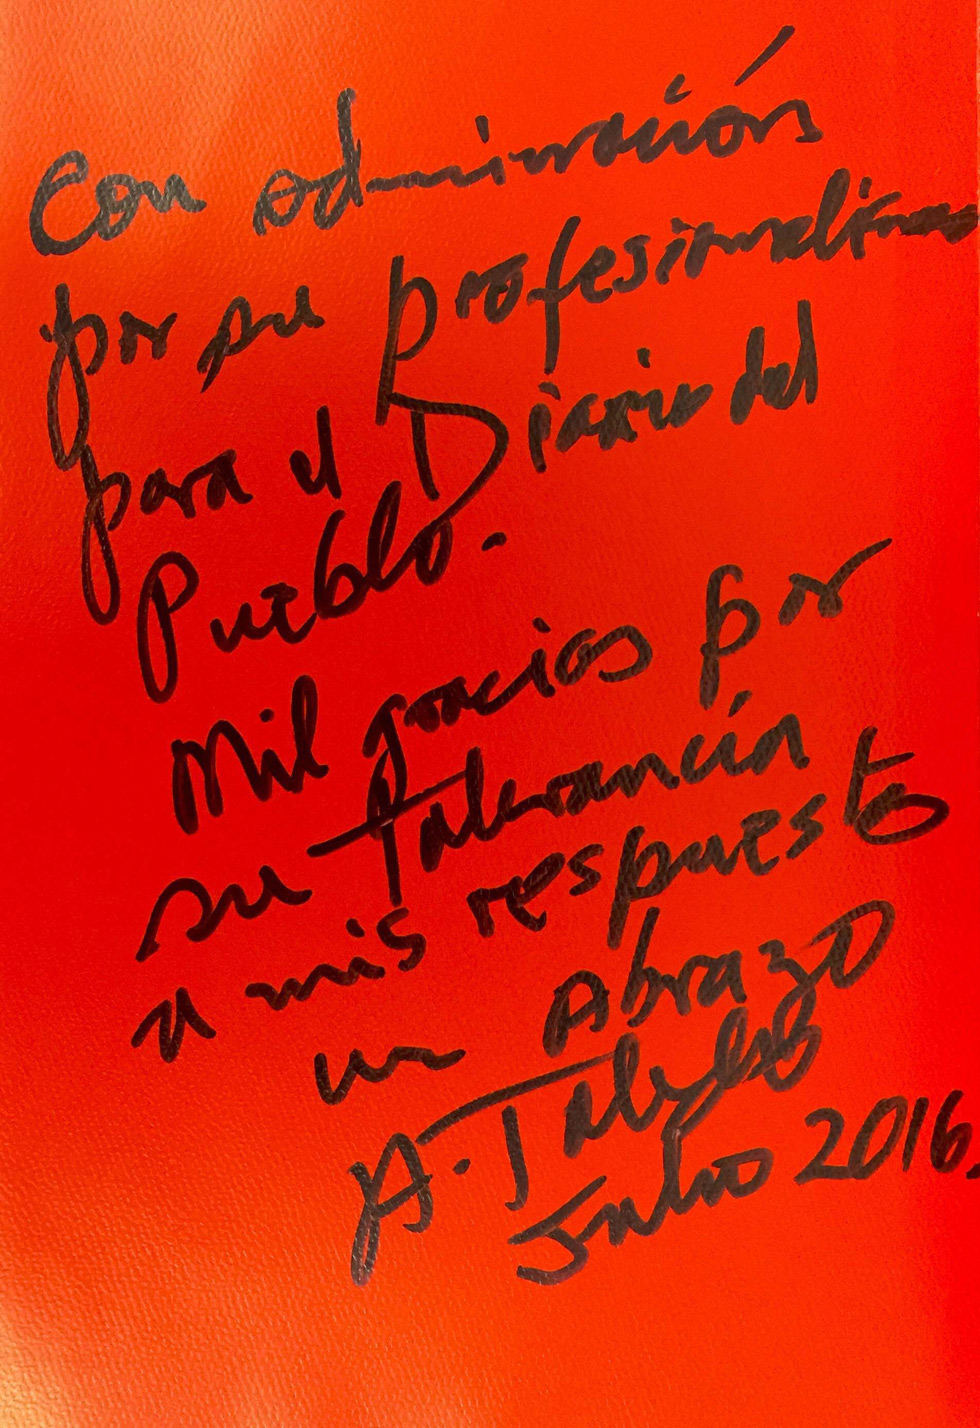 Con admiración
por su profesionalismo
para el Diario del
Pueblo.
Mil gracias por
su Tolerancia
a mis respuestas
un Abrazo
A. Toledo
Julio 2016.